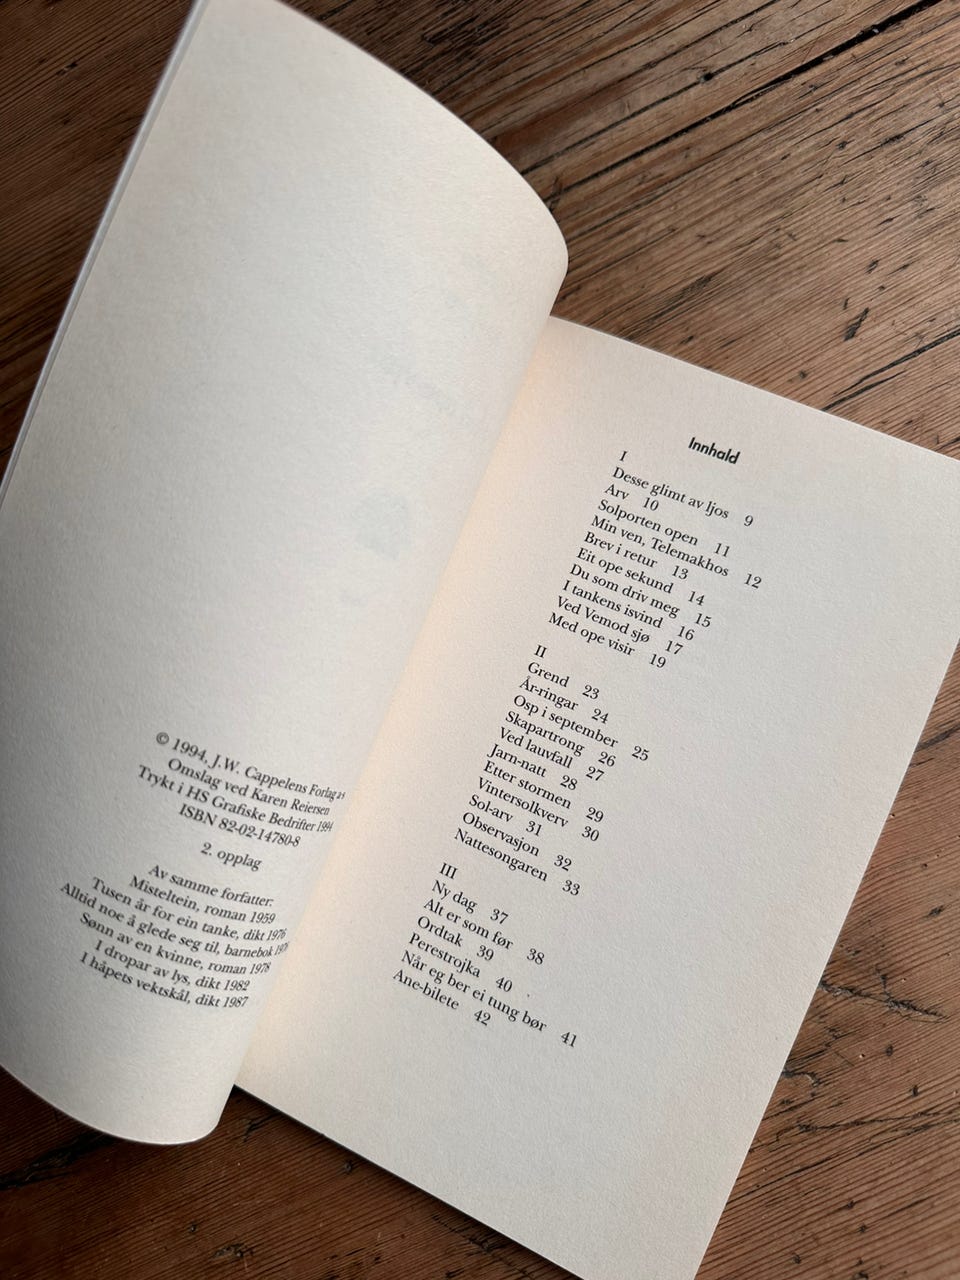 © 1994, J.W. Cappelens Forlag a·s
Omslag ved Karen Reiersen
Trykt i HS Grafiske Bedrifter 1994
ISBN 82-02-14780-8
2. opplag
Av samme forfatter:
Misteltein, roman 1959
Tusen år for ein tanke, dikt 1976
Alltid noe å glede seg til, barnebok 1976
Sønn av en kvinne, roman 1978
I dropar av lys, dikt 1982
I håpets vektskål, dikt 1987
Innhald
I
Desse glimt av ljos 9
Arv 10
Solporten open 11
Min ven, Telemakhos 12
Brev i retur 13
Eit ope sekund 14
Du som driv meg 15
I tankens isvind 16
Ved Vemod sjø 17
Med ope visir 19
II
Grend 23
År-ringar 24
Osp i september 25
Skapartrong 26
Ved lauvfall 27
Jarn-natt 28
Etter stormen 29
Vintersolkverv 30
Sol-arv 31
Observasjon 32
Nattesongaren 33
III
Ny dag 37
Alt er som før 38
Ordtak 39
Perestrojka 40
Når eg ber ei tung bør 41
Ane-bilete 42